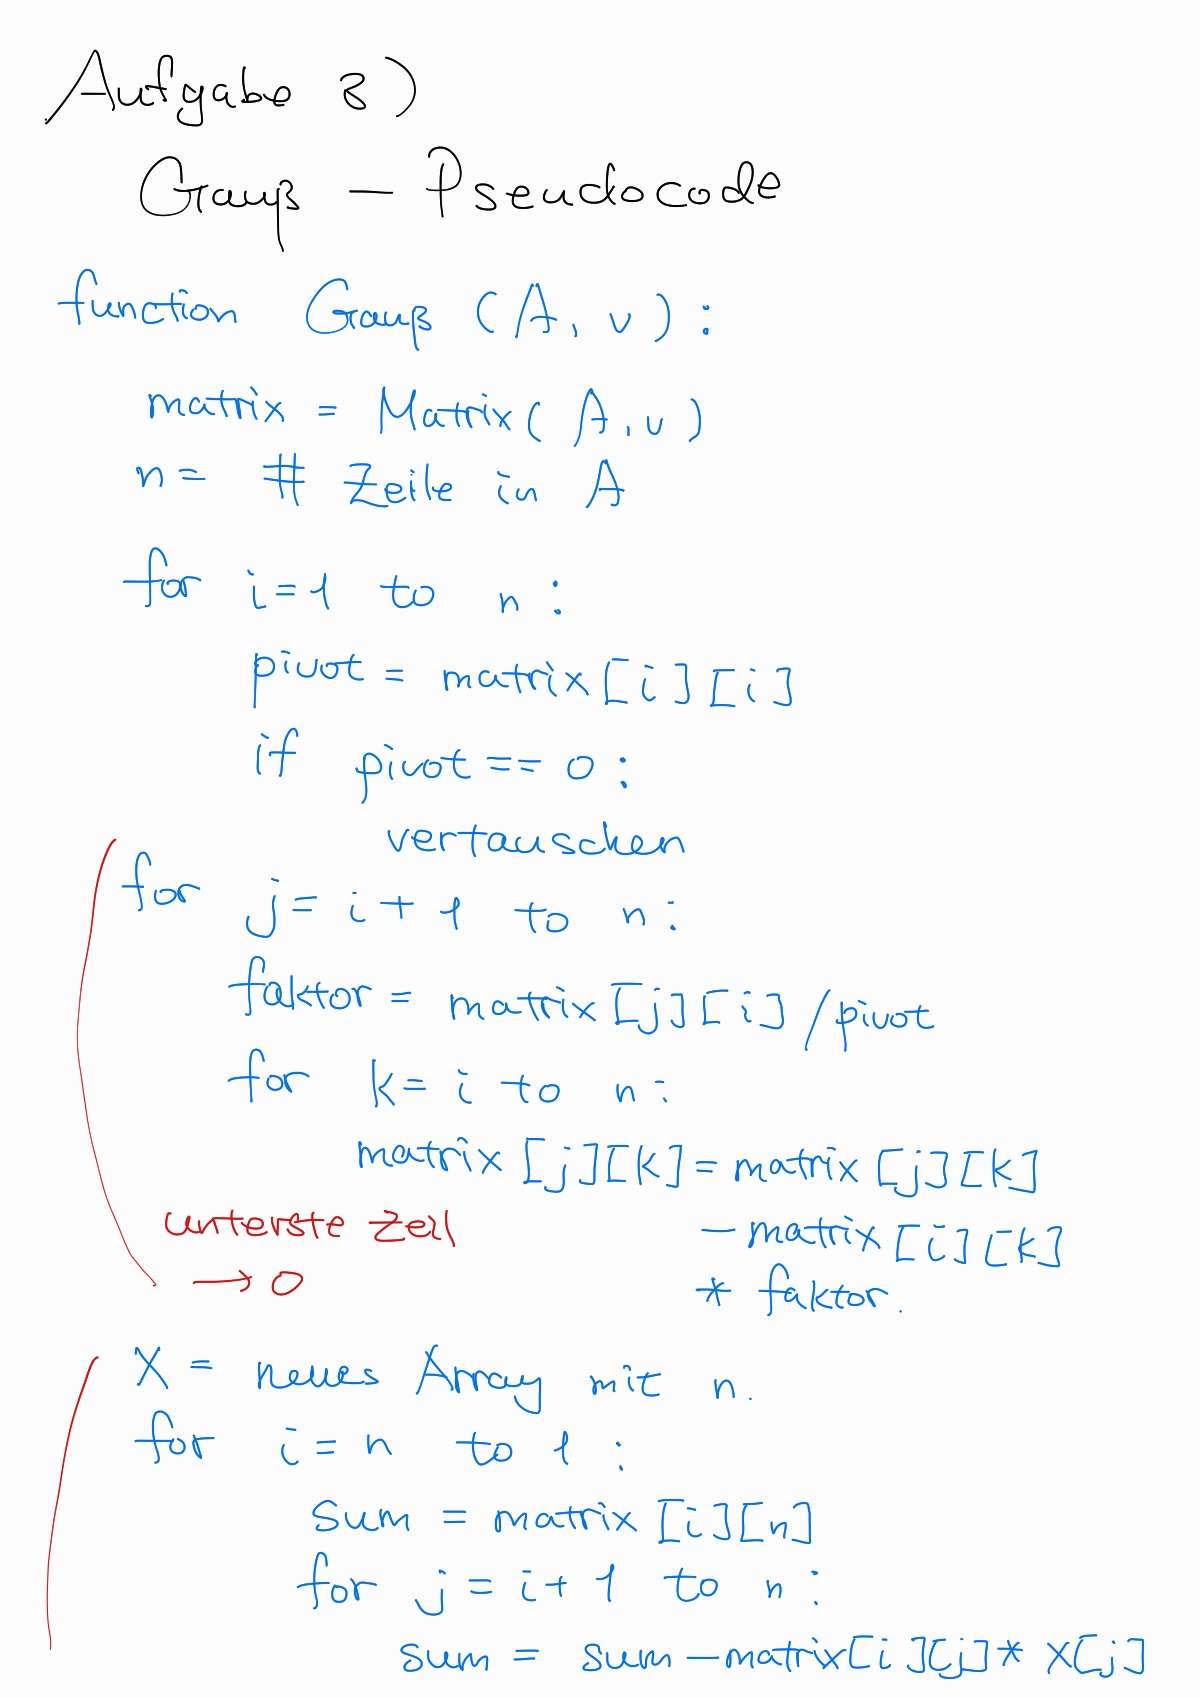 Aufgabe 3)
Gauß - Pseudocode
function Gauß (A, v):
matrix = Matrix( A, v)
n = # Zeile in A
for i=1 to n:
pivot = matrix[i][i]
if pivot == 0:
vertauschen
for j = i + 1 to n:
faktor = matrix[j][i]/pivot
for k = i to n:
matrix [j][k] = matrix [j][k]
- matrix [i][k]
* faktor.
unterste Zeil
→ 0
X = neues Array mit n.
for i = n to 1 :
sum = matrix [i][n]
for j = i + 1 to n :
sum = sum - matrix[i][j] * X[j]